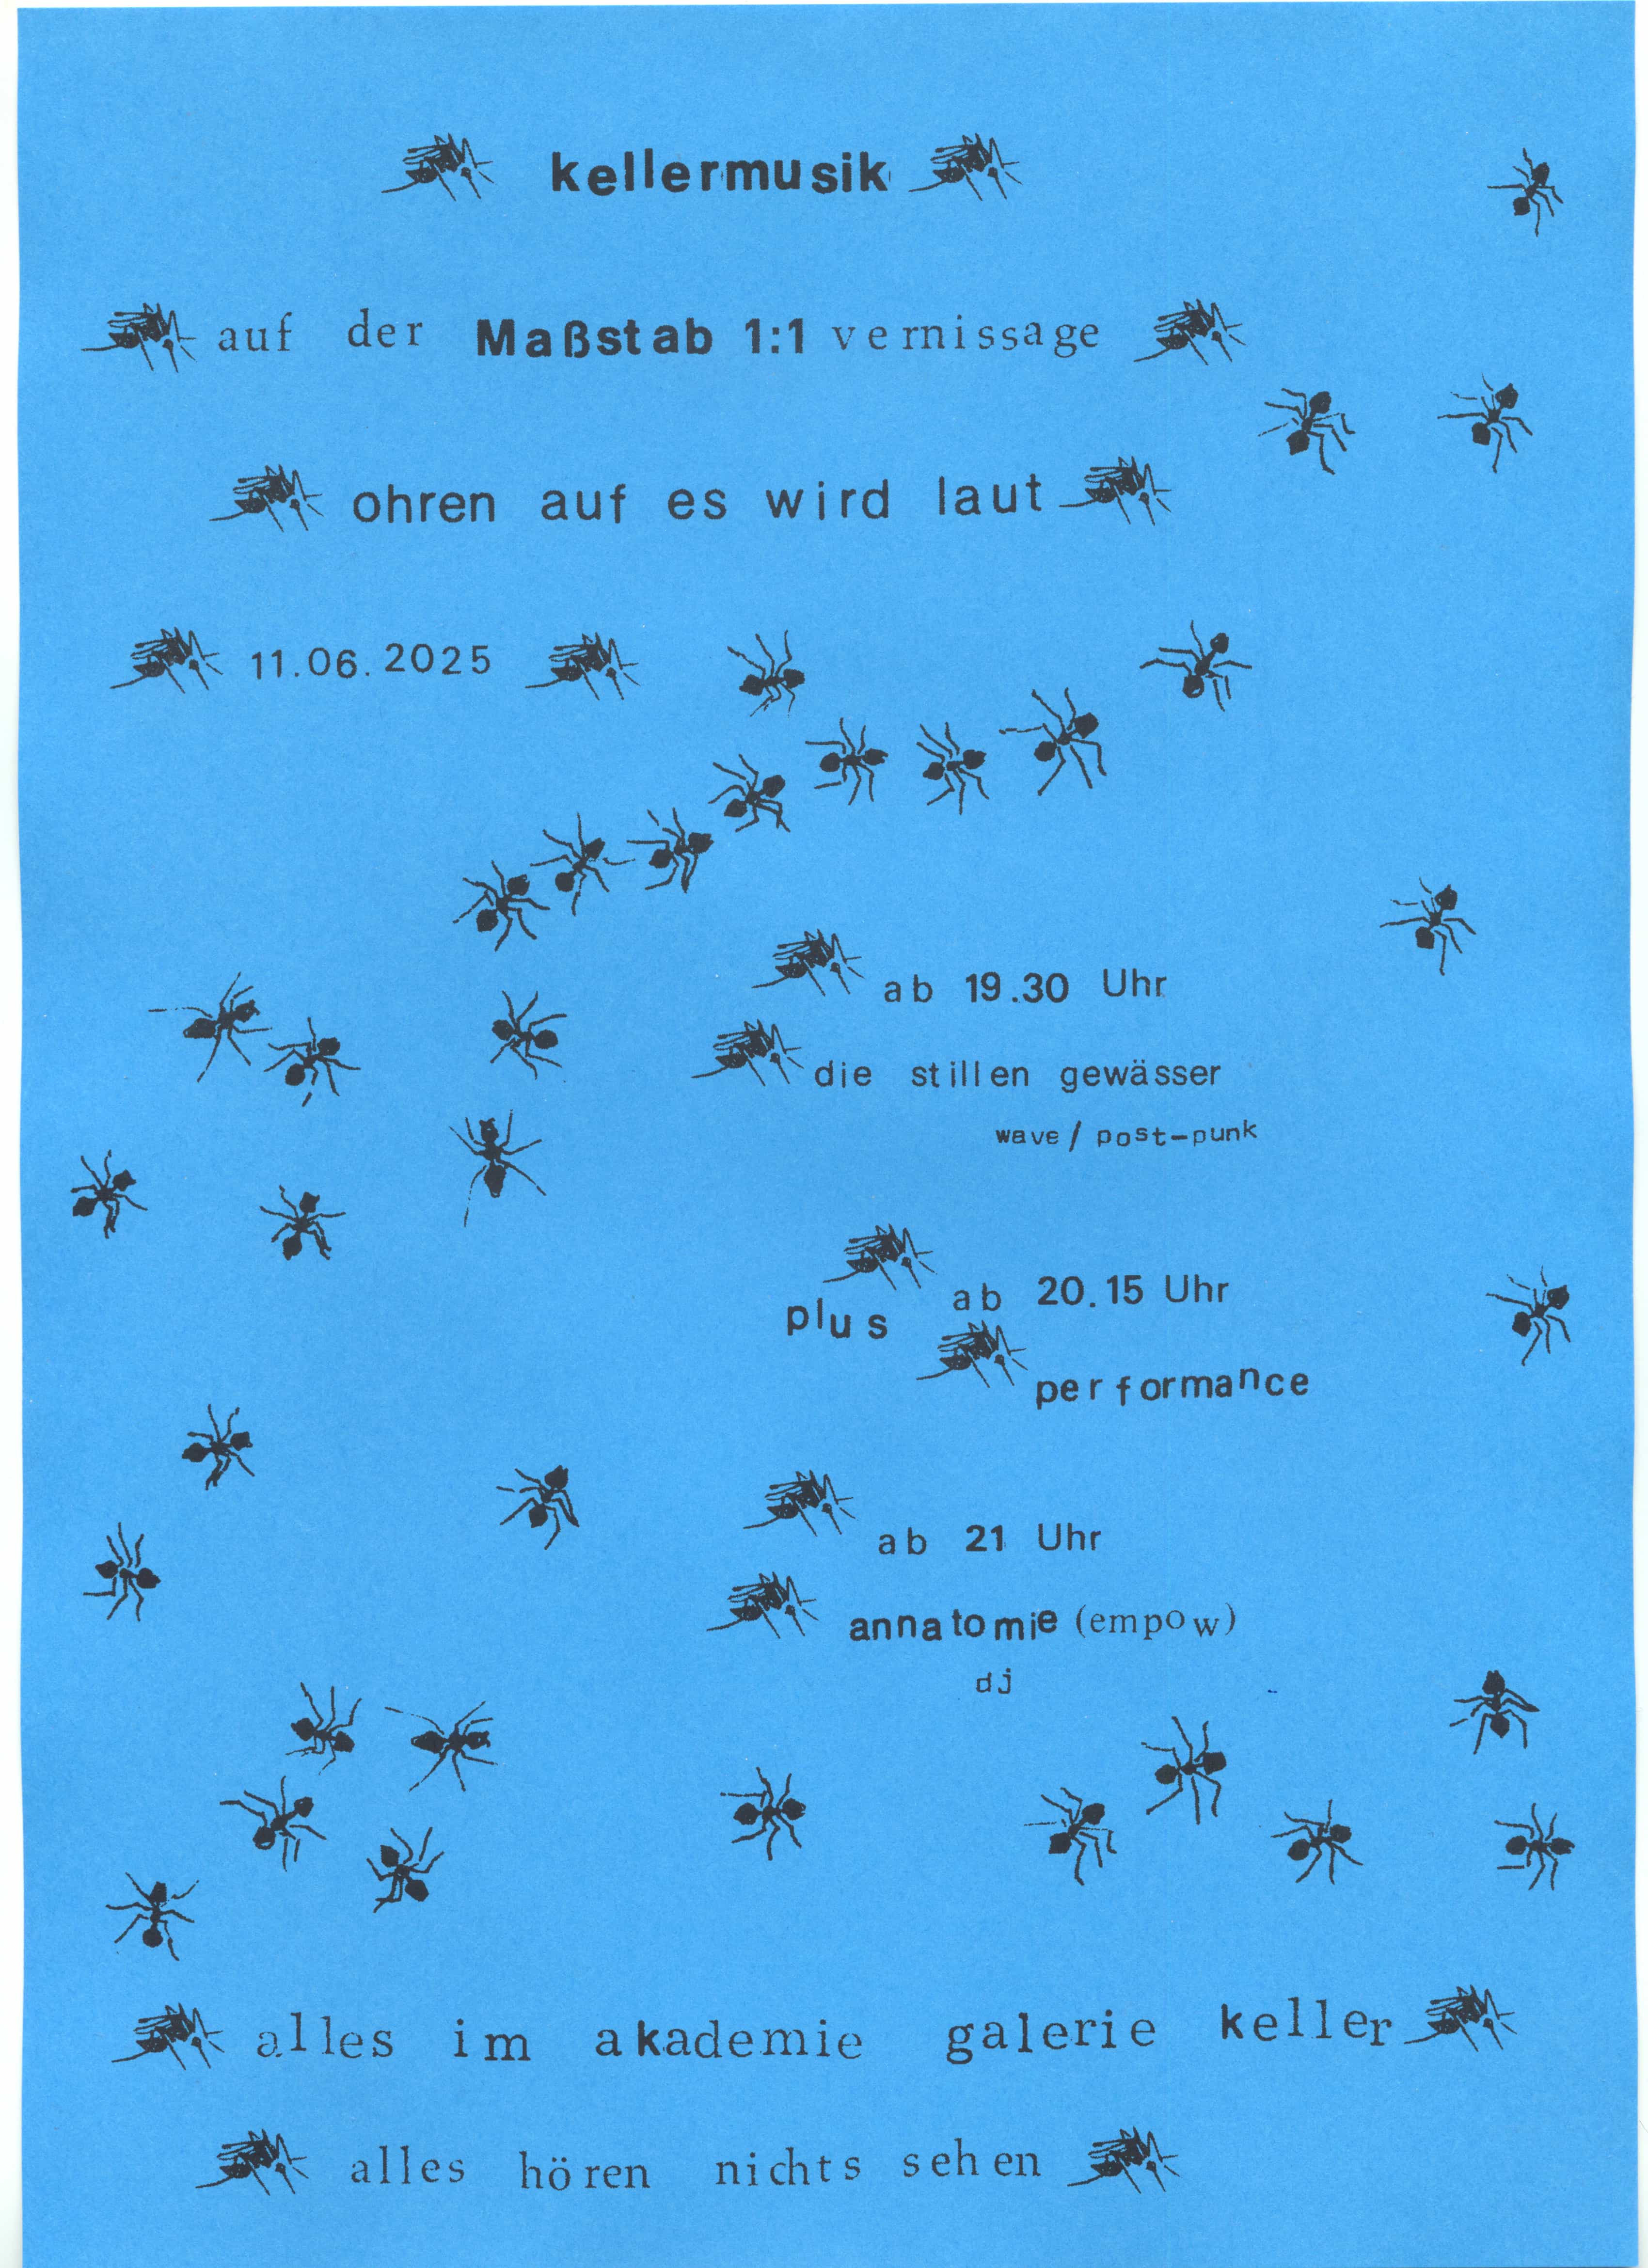 kellermusik
auf der Maßstab 1:1 vernissage
ohren auf es wird laut
11.06.2025
ab 19.30 Uhr
die stillen gewässer
wave / post-punk
plus ab 20.15 Uhr
performance
ab 21 Uhr
annatomie (empow)
dj
alles im akademie galerie keller
alles hören nichts sehen